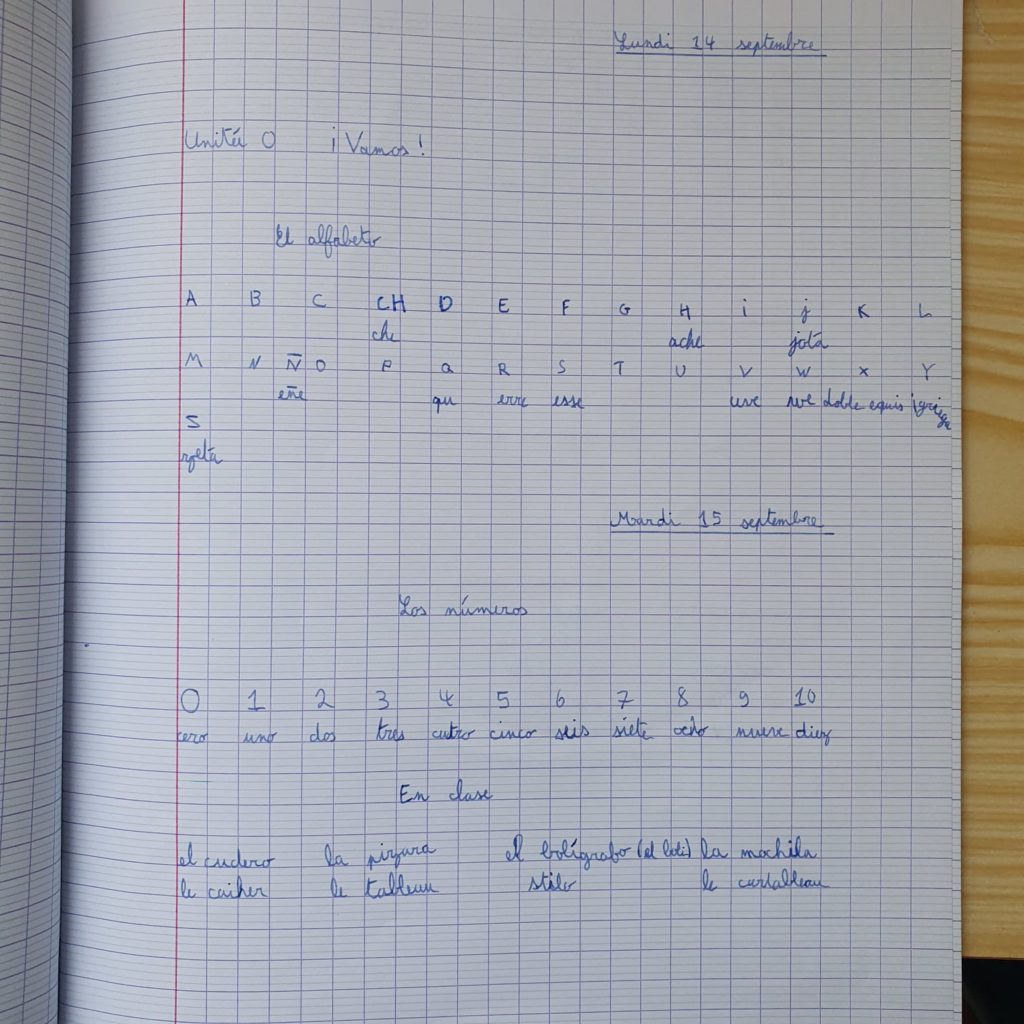 Lundi 14 septembre
Unité 0 ¡Vamos!
El alfabeto
A B C CH D E F G H i j K L
che ache jota
M N Ñ O P Q R S T U V W X Y
eñe qu erre esse uve uve doble equis igriega
S
zeta
Mardi 15 septembre
Los números
0 1 2 3 4 5 6 7 8 9 10
cero uno dos tres cutro cinco seis siete ocho nueve diez
En clase
el cudero la pizara el bolígrabo (el boli) la mochila
le caiher le tableau stilo le curtableau